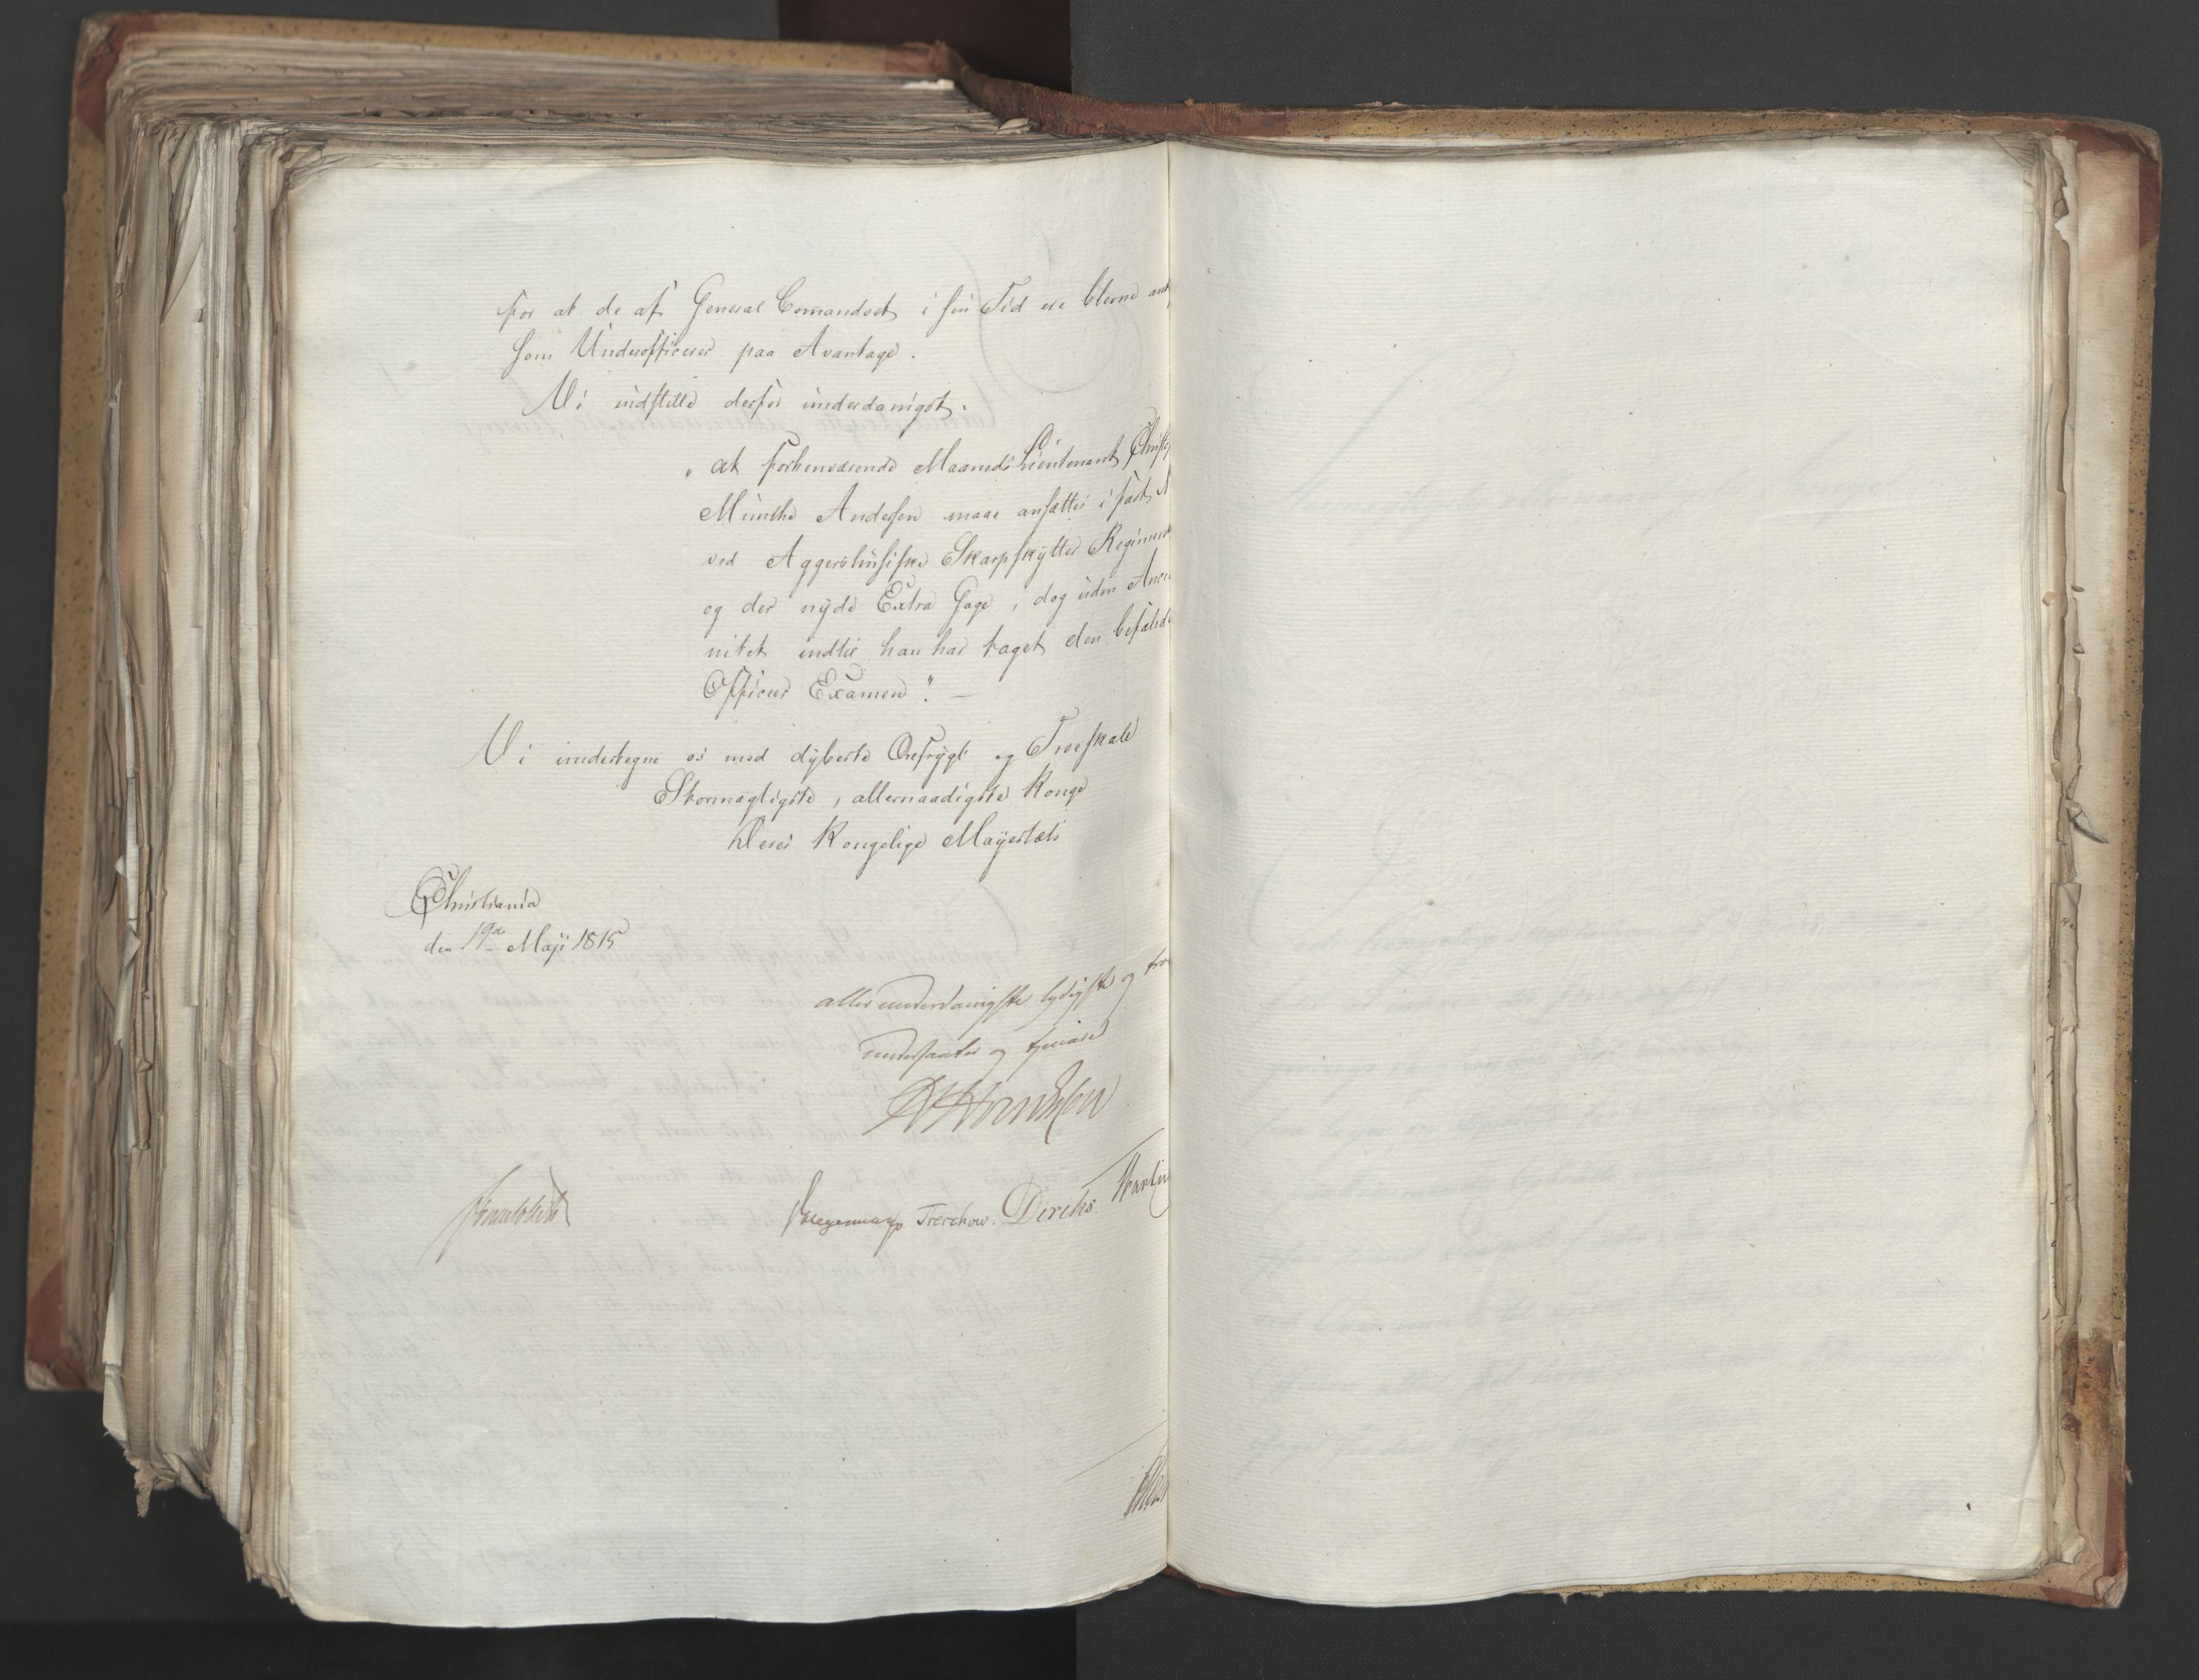 for at de af General Comandoet i sin Tid ere blevne
som Underofficerer paa Avantage.
Vi indstille derfor underdanigst.
„at forhenværende Maaneds Lieutenant
Munthe Andersen maae ansættes i fast
ved Aggershuusiske Skarpskytter Regiment
og der nyde Extra Gage, dog uden Anci
nitet indtil han har taget den befalede
Officeer Examen". —
Vi undertegne os med dybeste Ærefrygt og Troeskab
Stormægtigste, allernaadigste Konge
Deres Kongelige Mayestæts
Christiania
den 19de Maji 1815
allerunderdanigste lydigste og tro
undersaatter og tjenere
Treschow. Diriks.